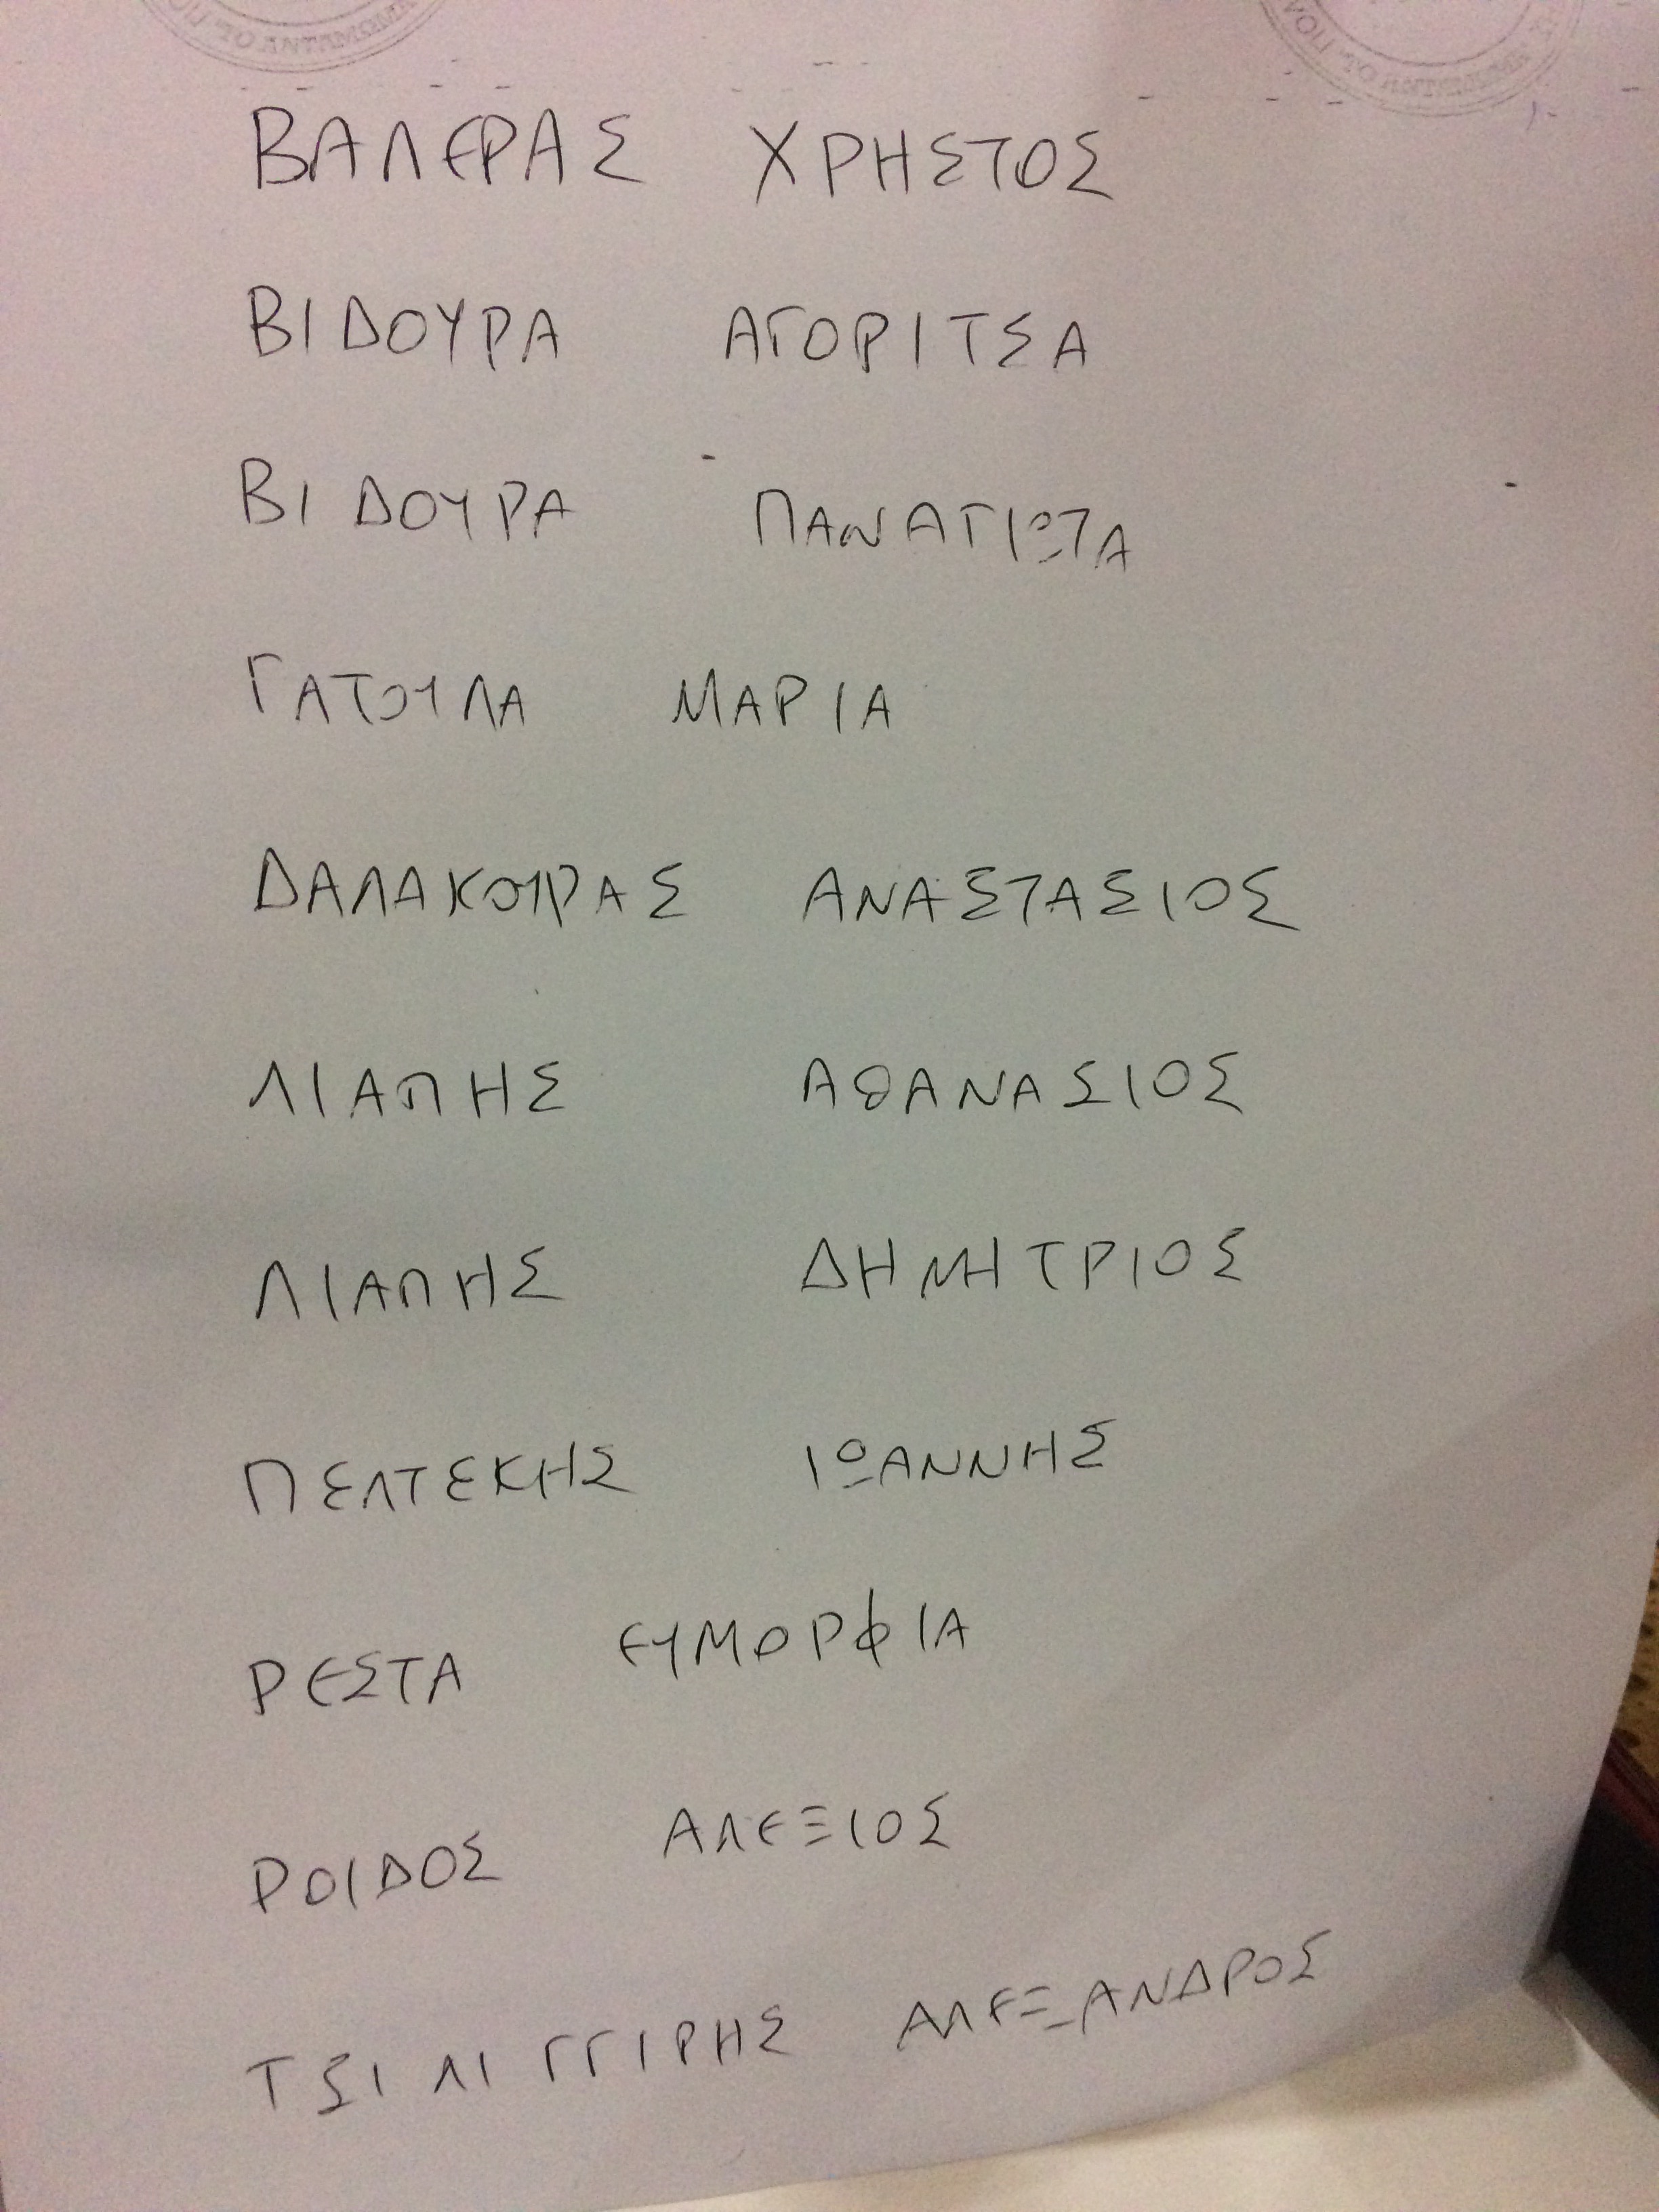 ΒΑΛΕΡΑΣ ΧΡΗΣΤΟΣ
ΒΙΔΟΥΡΑ ΑΓΟΡΙΤΣΑ
ΒΙΔΟΥΡΑ ΠΑΝΑΓΙΩΤΑ
ΓΑΤΟΥΛΑ ΜΑΡΙΑ
ΔΑΛΑΚΟΥΡΑΣ ΑΝΑΣΤΑΣΙΟΣ
ΛΙΑΠΗΣ ΑΘΑΝΑΣΙΟΣ
ΛΙΑΠΗΣ ΔΗΜΗΤΡΙΟΣ
ΠΕΛΤΕΚΗΣ ΙΩΑΝΝΗΣ
ΡΕΣΤΑ ΕΥΜΟΡΦΙΑ
ΡΟΙΔΟΣ ΑΛΕΞΙΟΣ
ΤΣΙΛΙΓΓΙΡΗΣ ΑΛΕΞΑΝΔΡΟΣ